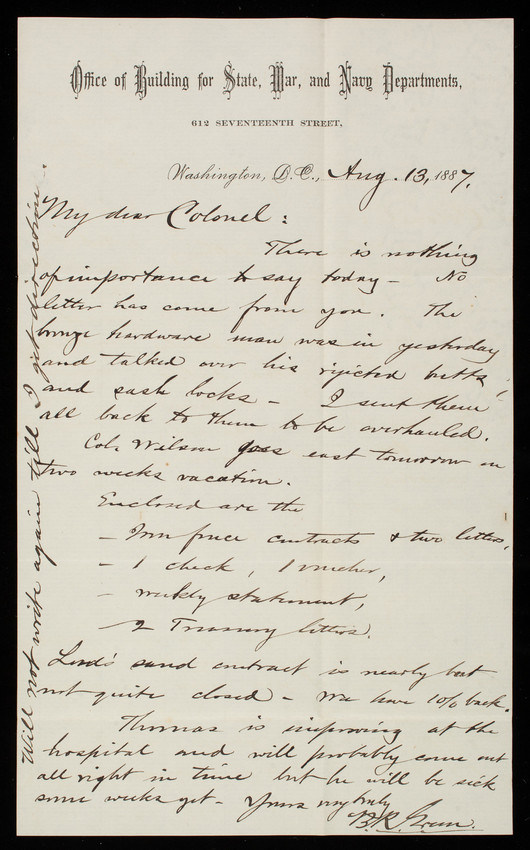 Office of Building for State, War, and Navy Departments,
612 SEVENTEENTH STREET,
Washington, D.C., Aug. 13, 1887.
My dear Colonel:
There is nothing
of importance to say today - No
letter has come from you. The
bronze hardware man was in yesterday
and talked over his rejected butts
and sash locks - I sent them
all back to them to be overhauled.
Col. Wilson goes east tomorrow on
two weeks vacation.
Enclosed are the
- Iron fence contracts & two letters,
- 1 check, 1 voucher,
- weekly statement,
- 2 Treasury letters.
Lord's sand contract is nearly but
not quite closed - We have 10% back.
Thomas is improving at the
hospital and will probably come out
all right in time but he will be sick
some weeks yet - Yours very truly
B.R. Green.
Will not write again till I get direction.